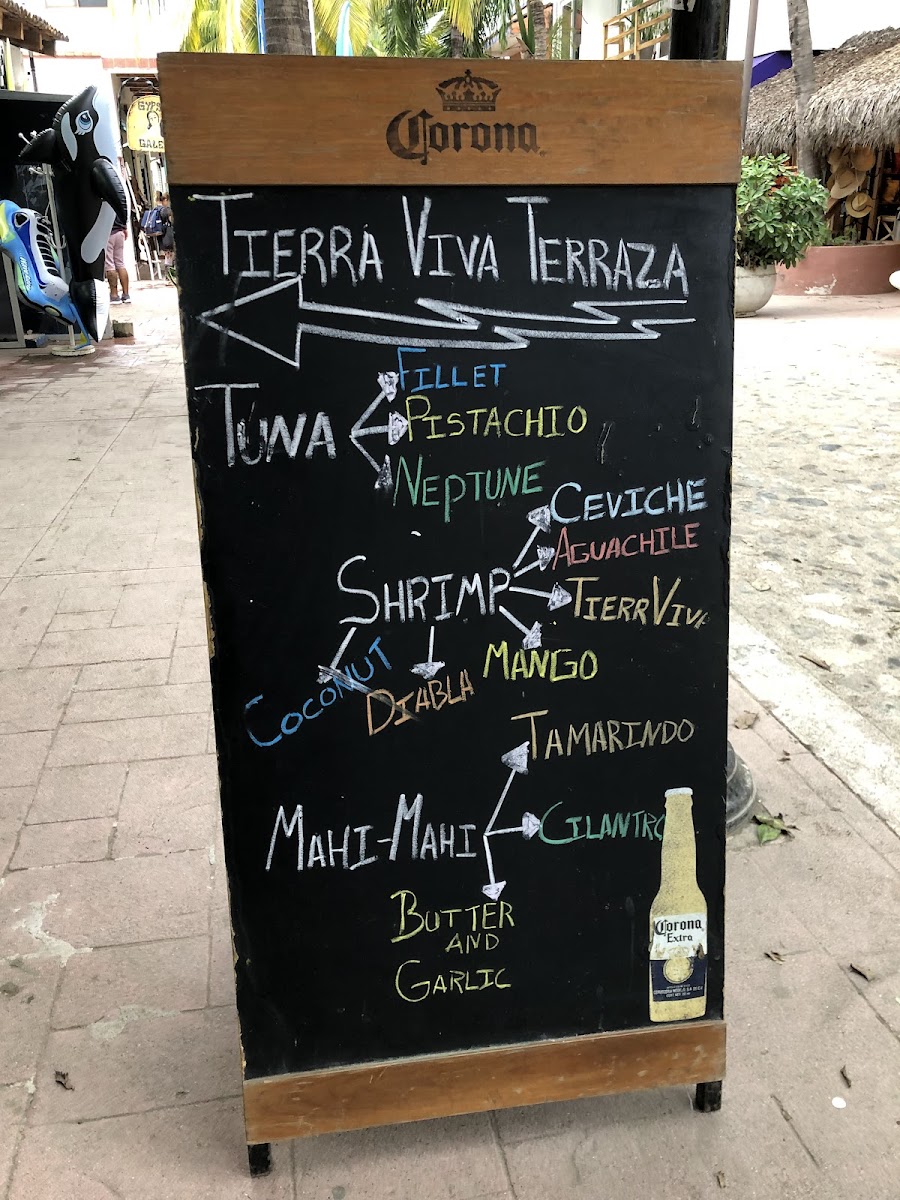 GYPSY
GALE
Corona
TIERRA VIVA TERRAZA
TUNA
FILLET
PISTACHIO
NEPTUNE
SHRIMP
CEVICHE
AGUACHILE
TIERRVIVA
MANGO
DIABLA
COCONUT
MAHI-MAHI
TAMARINDO
CILANTRO
BUTTER
AND
GARLIC
Corona
Extra